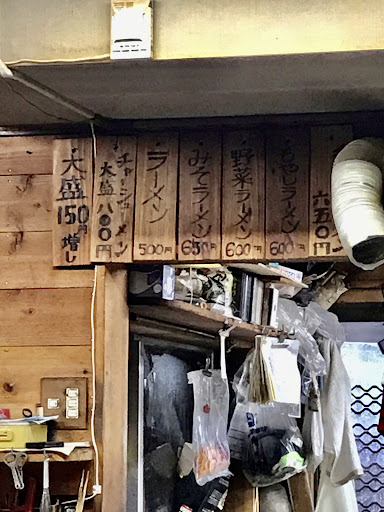 六五〇円
もやしラーメン
600円
野菜ラーメン
600円
みそラーメン
650円
ラーメン
500円
チャーシューメン
大盛 八〇〇円
大盛
150円
増し